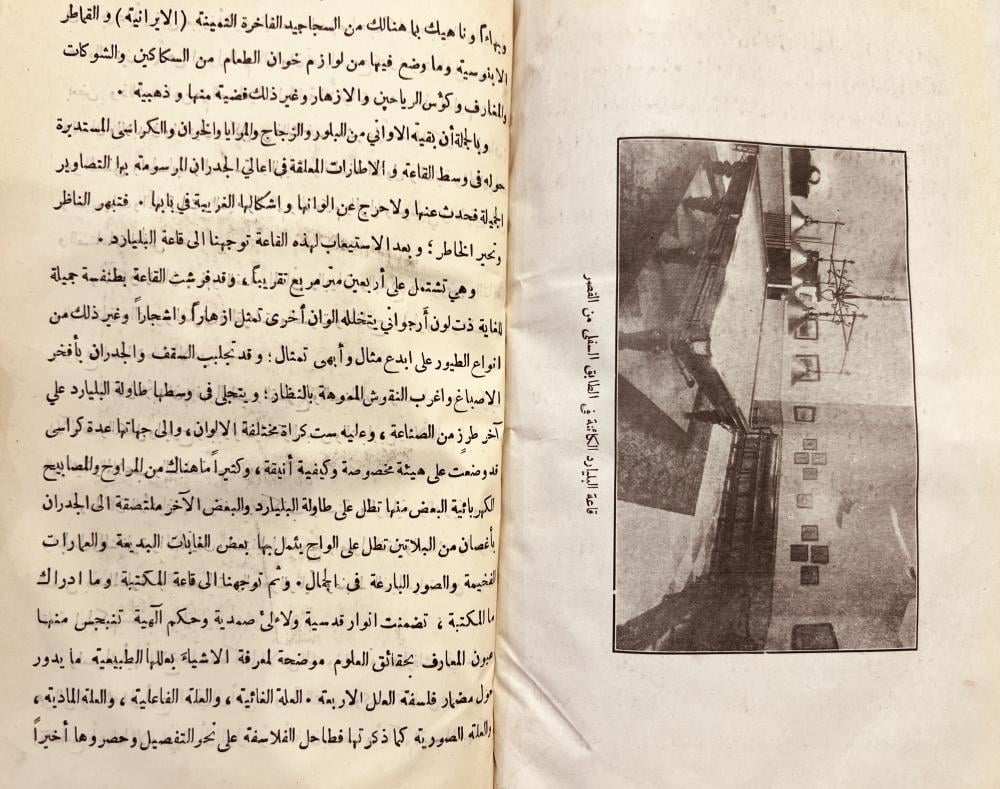 قاعة البليارد الكائنة فى الطابق السفلى من القصر
وبهاءاً وناهيك بما هنالك من السجاجيد الفاخرة الثمينة (الايرانية) و القماطر
الابنوسية وما وضع فيها من لوازم خوان الطعام من السكاكين والشوكات
والمغارف وكؤس الرياحين والازهار وغير ذلك فضية منها و ذهبية .
وبالجملة أن بقية الاواني من البلور والزجاج والمرايا والخوان والكراسى المستديرة
حوله فى وسط القاعة و الاطارات المعلقة فى اعالي الجدران المرسومة بها التصاوير
الجميلة فحدث عنها ولا حرج عن الوانها و اشكالها الغريبة في بابها . فتبهر الناظر
وتحير الخاطر ؛ و بعد الاستيعاب لهذه القاعة توجهنا الى قاعة البليارد .
وهي تشتمل على أربعين متر مربع تقريباً ، وقد فرشت القاعة بطنفسة جميلة
للغاية ذت لون أرجواني يتخلله الوان أخرى تمثل ازهاراً واشجاراً وغير ذلك من
انواع الطيور على ابدع مثال وأبهى تمثال ؛ و قد تجلبب السقف والجدران بأفخر
الاصباغ واغرب النقوش المموهة بالنظار ؛ و يتجلى فى وسطها طاولة البليارد علي
آخر طرز من الصناعة ، وعليه ست كراة مختلفة الالوان ، والى جهاتها عدة كراسى
قد وضعت على هيئة مخصوصة وكيفية أنيقة ، وكثيراً ما هناك من المراوح والمصابيح
الكهربائية البعض منها تظل على طاولة البليارد والبعض الآخر ملتصقة الى الجدران
بأغصان من البلاتين تطل على الواح يمثل بها بعض الغابات البديعة والعمارات
الفخيمة والصور البارعة في الجمال . وثم توجهنا الى قاعة المكتبة وما ادراك
ما المكتبة ، تضمنت انوار قدسية ولاءلئ صمدية وحكم آلهية تنبجس منها
عيون المعارف بحقائق العلوم موضحة لمعرفة الاشياء بعللها الطبيعية ما يدور
حول مضمار فلسفة العلل الاربعة . العلة الغائية ، والعلة الفاعلية ، والعلة المادية ،
والعلة الصورية كما ذكرتها فطاحل الفلاسفة على نحو التفصيل وحصروها أخيراً